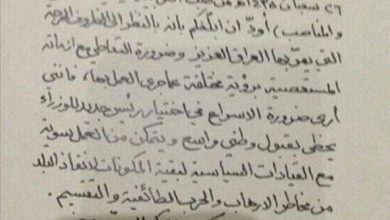 والمناصب) أودّ ان ابلغكم بأنه بالنظر الى الظروف الحرجة
التي يمر بها العراق العزيز وضرورة التعاطي مع ازماته
المستعصية برؤية مختلفة عما جرى العمل بها، فانني
أرى ضرورة الاسراع في اختيار رئيس جديد للوزراء
يحظى بقبول وطني واسع ويتمكن من العمل سوية
مع القيادات السياسية لبقية المكونات لانقاذ البلد
من مخاطر الارهاب والحرب الطائفية والتقسيم .